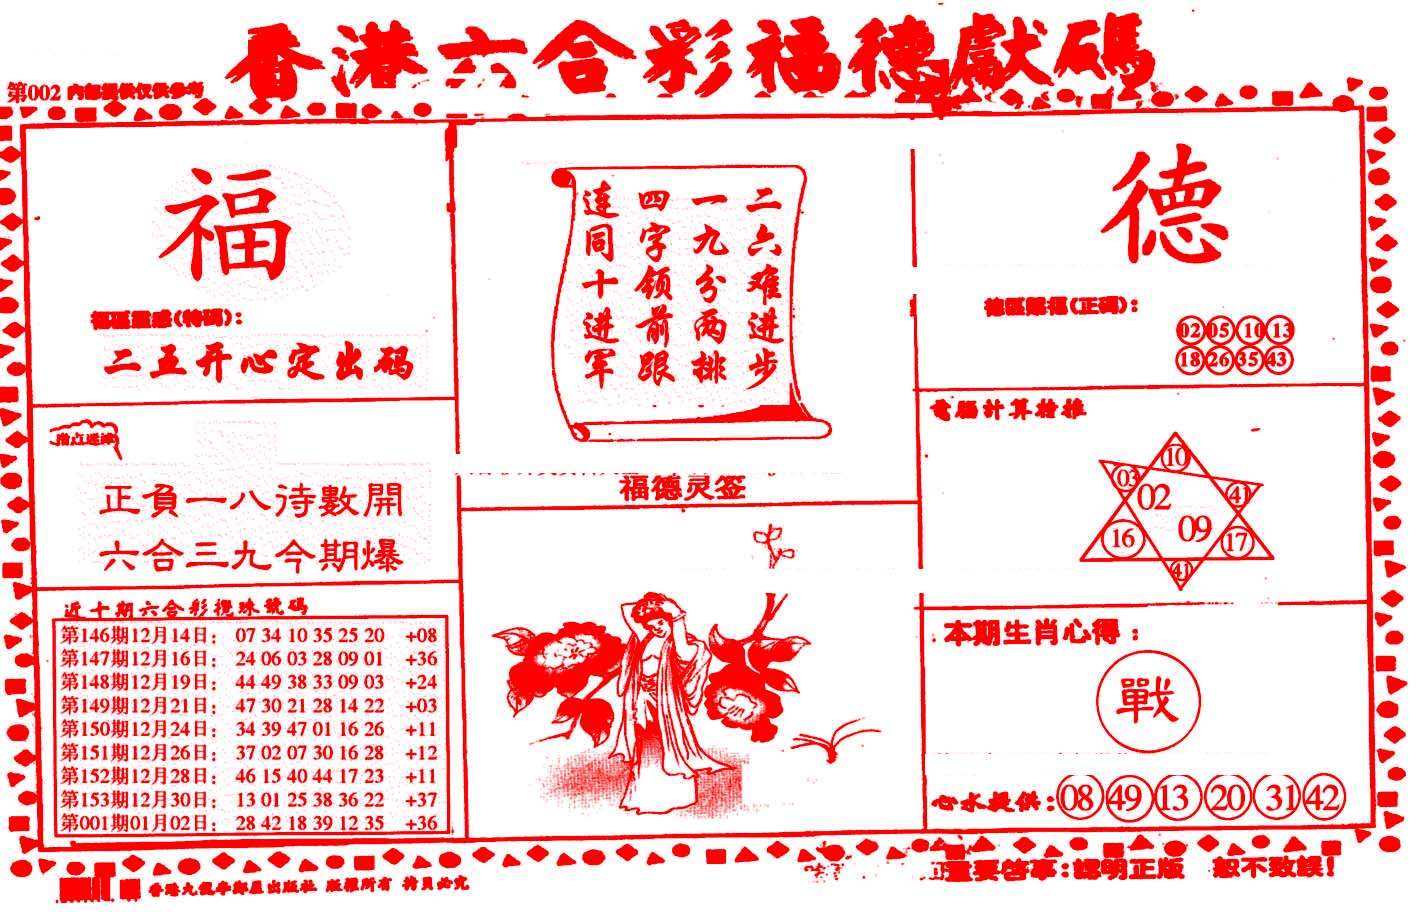 香港六合彩福德獻碼
第002 内部提供仅供参考
福
福區靈感(特碼):
二五开心定出码
指点迷津
正負一八待數開
六合三九今期爆
近十期六合彩攪珠號碼
第146期12月14日: 07 34 10 35 25 20 +08
第147期12月16日: 24 06 03 28 09 01 +36
第148期12月19日: 44 49 38 33 09 03 +24
第149期12月21日: 47 30 21 28 14 22 +03
第150期12月24日: 34 39 47 01 16 26 +11
第151期12月26日: 37 02 07 30 16 28 +12
第152期12月28日: 46 15 40 44 17 23 +11
第153期12月30日: 13 01 25 38 36 22 +37
第001期01月02日: 28 42 18 39 12 35 +36
二六难进步
一九分两排
四字领前跟
连同十进军
福德灵签
德
德區賜福(正碼):
02 05 10 13
18 26 35 43
電腦計算精推
10
03 41
02
09
16 17
41
本期生肖心得:
戰
心水提供: 08 49 13 20 31 42
香港九龍 出版社 版權所有 拷貝必究
重要啓事:認明正版 恕不致誤!